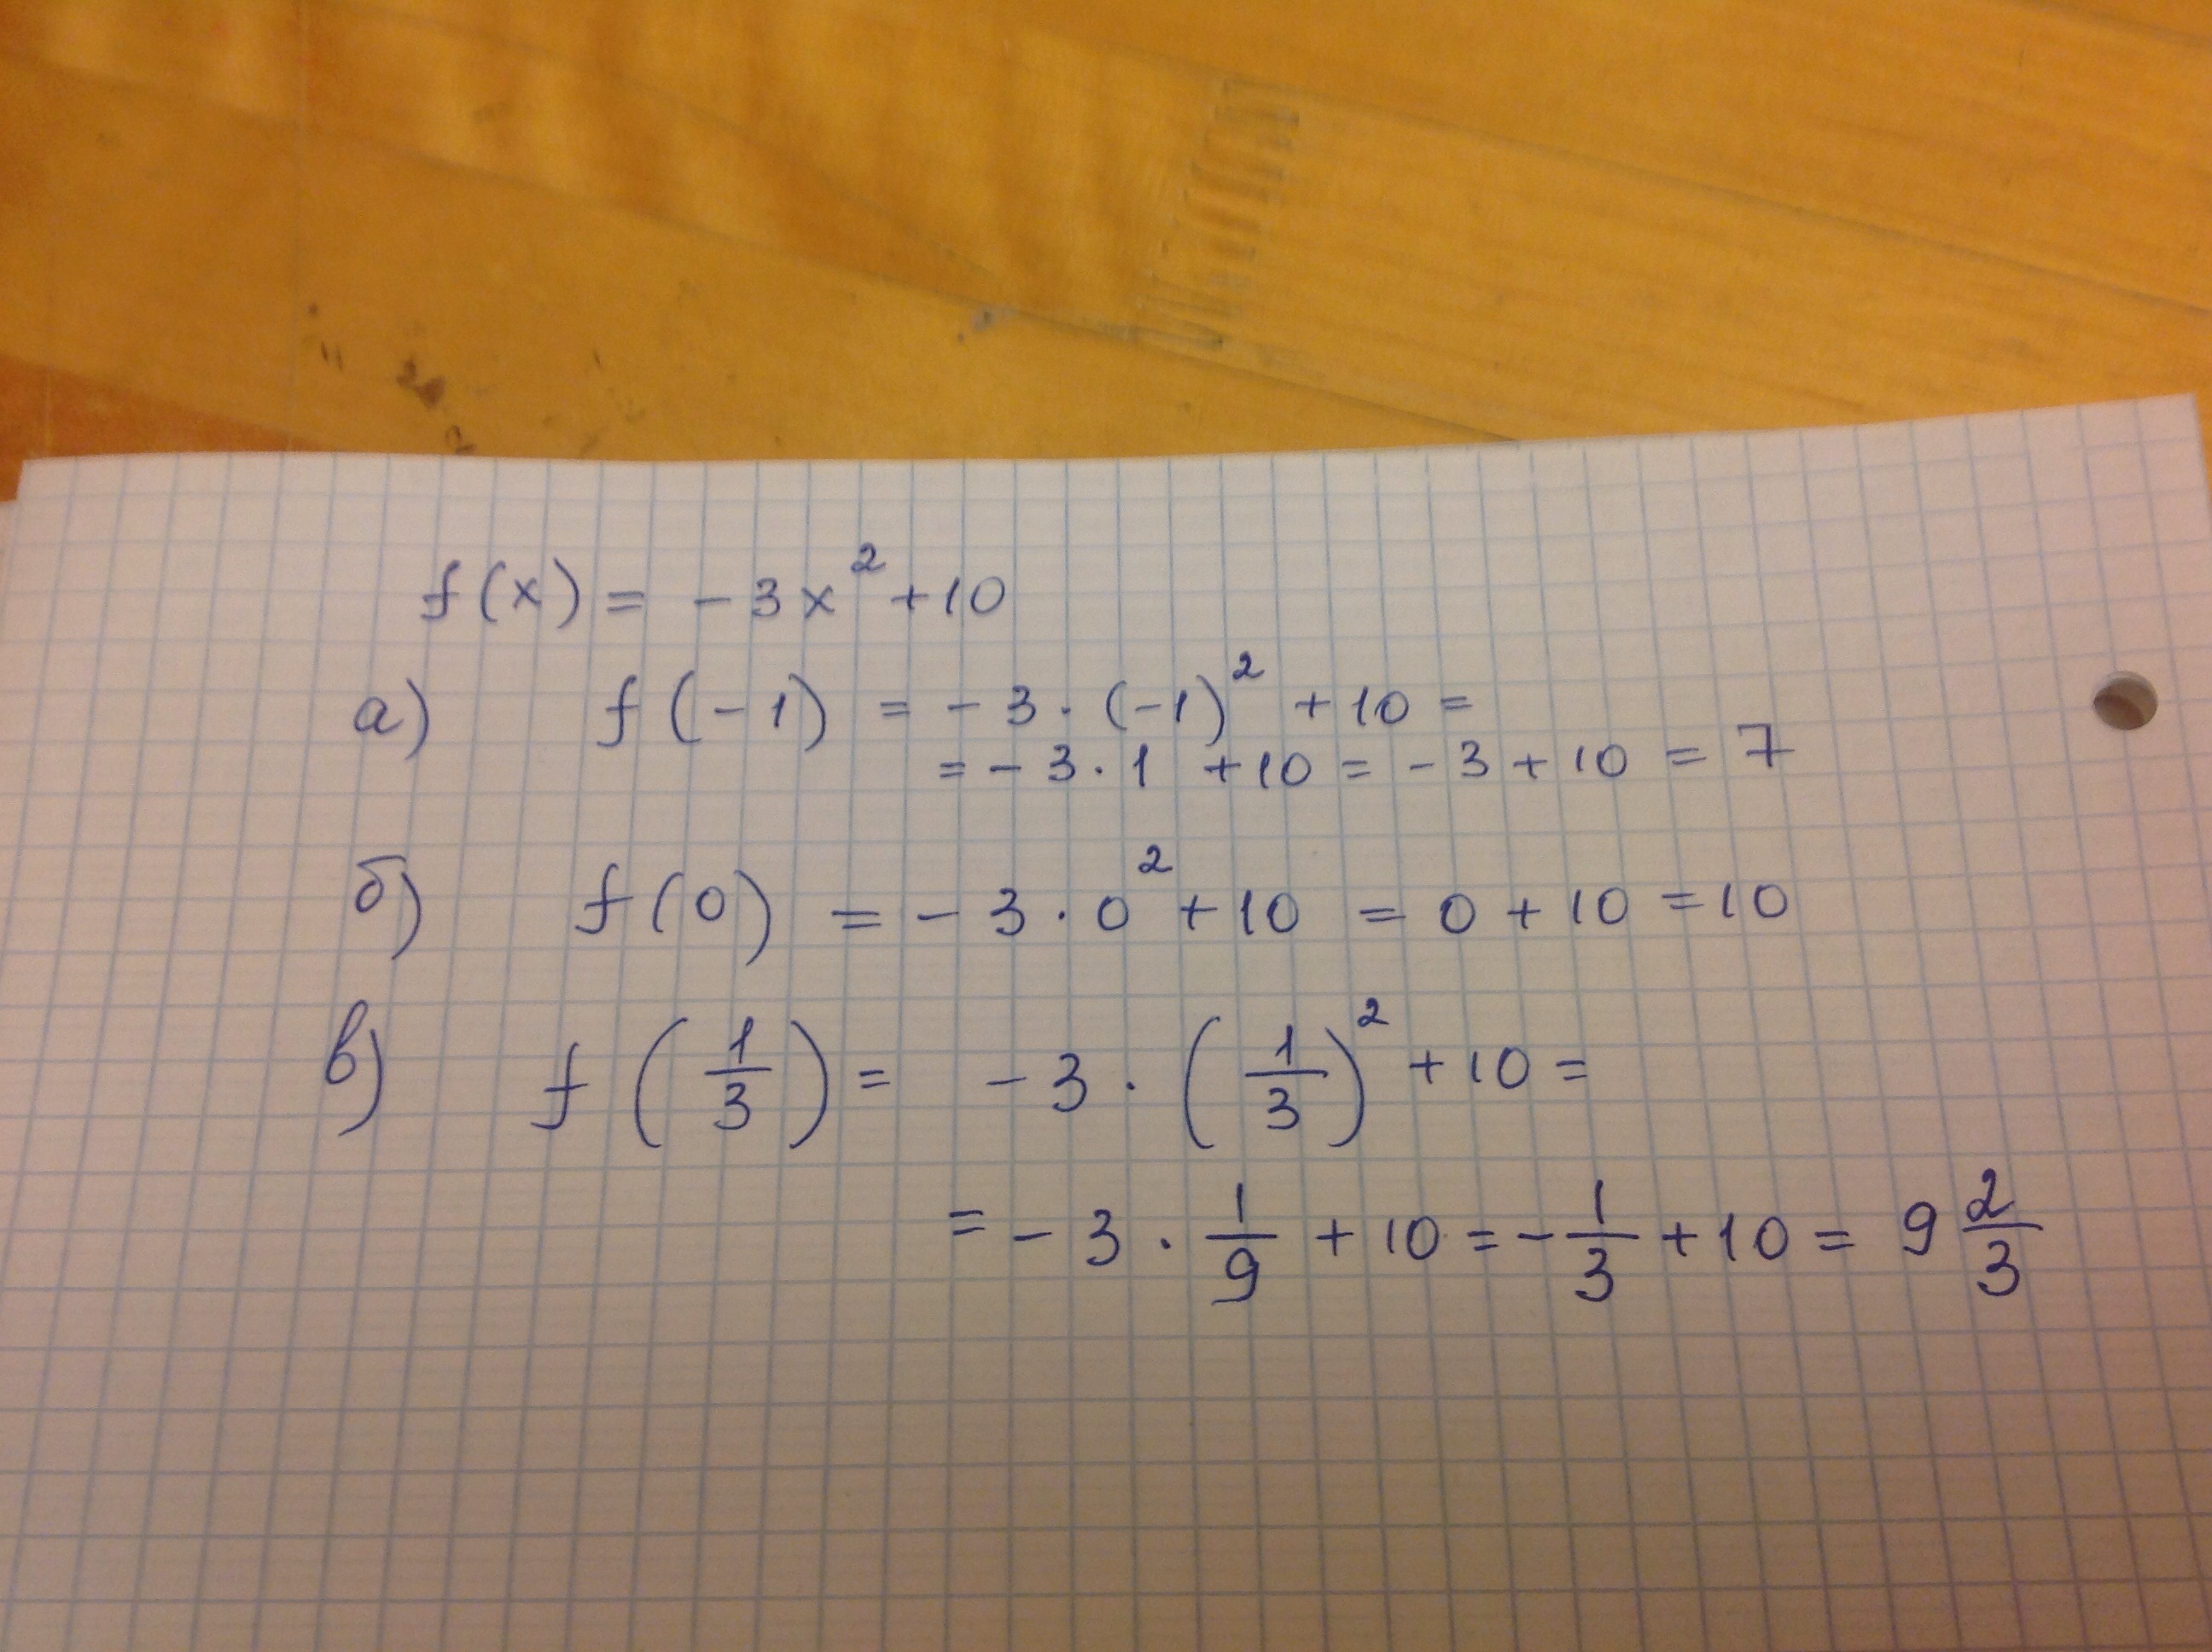 f(x) = -3x² + 10
а) f(-1) = -3·(-1)² + 10 =
= -3·1 + 10 = -3 + 10 = 7
б) f(0) = -3·0² + 10 = 0 + 10 = 10
в) f(1/3) = -3·(1/3)² + 10 =
= -3·1/9 + 10 = -1/3 + 10 = 9 2/3